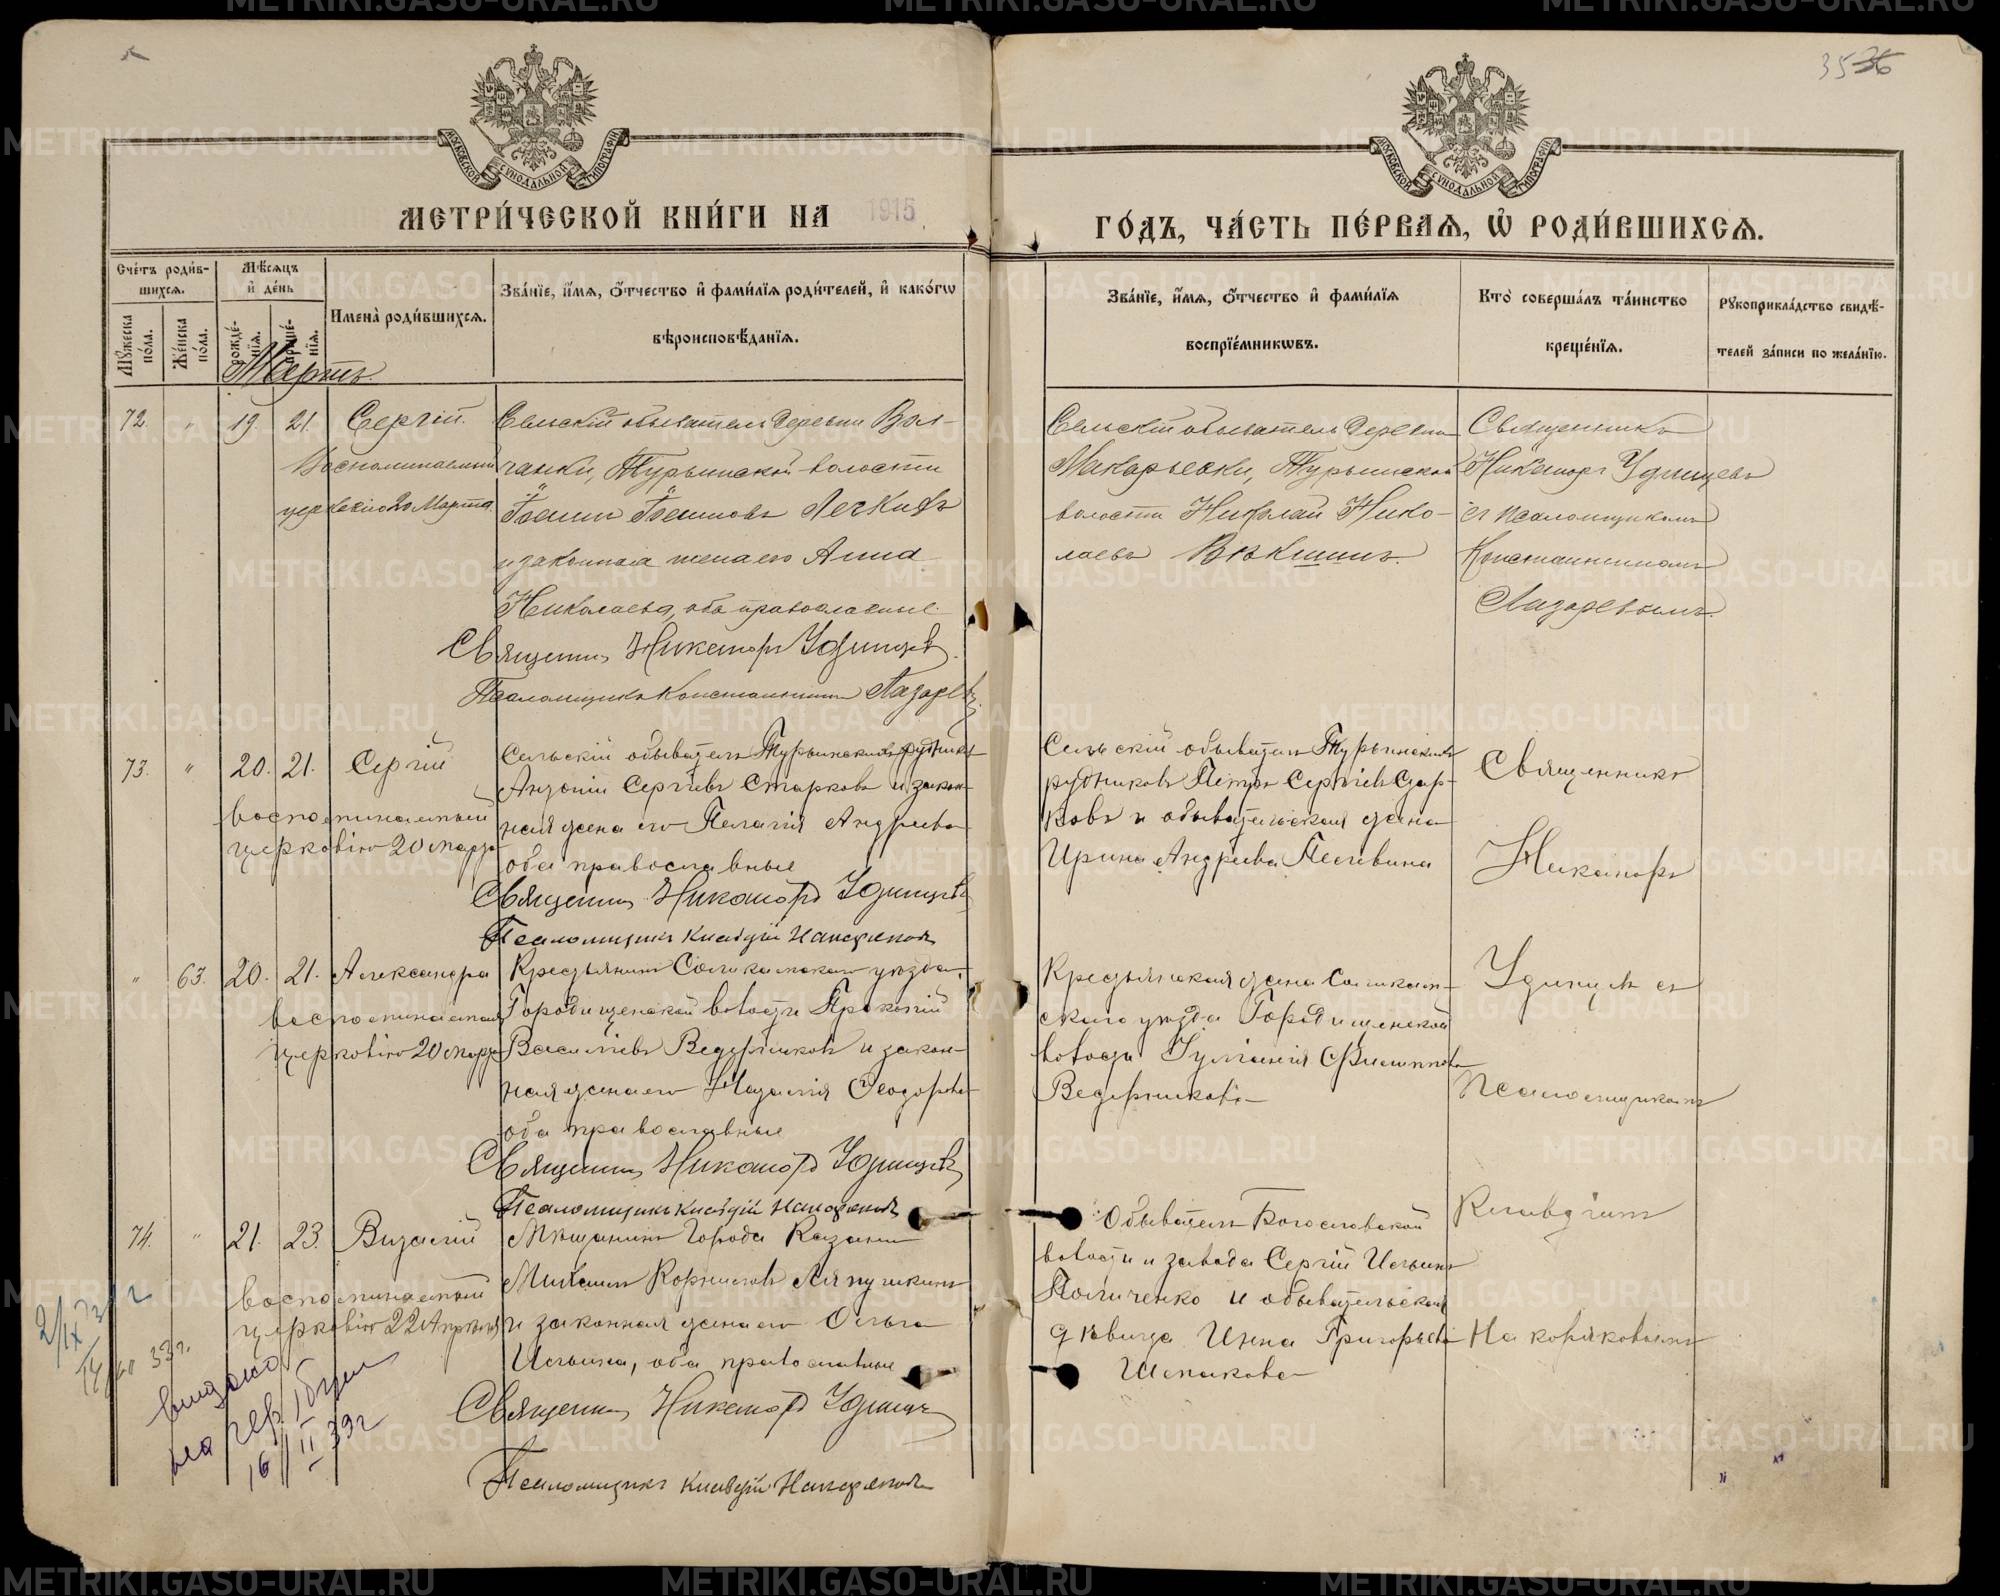 35 36
МОСКОВСКОЙ СѴНОДАЛЬНОЙ ТИПОГРАФІИ
МОСКОВСКОЙ СѴНОДАЛЬНОЙ ТИПОГРАФІИ
МЕТРИ́ЧЕСКОЙ КНИ́ГИ НА 1915
ГО́ДЪ, ЧА́СТЬ ПЕ́РВАѦ, Ѡ҆ РОДИ́ВШИХСѦ.
Сче́тъ роди́в-
шихсѧ.
Мꙋ́жеска по́ла.
Же́нска по́ла.
Мѣ́сѧцъ
и҆ де́нь
рожде́-
нїѧ.
креще́-
нїѧ.
Имена̀ роди́вшихсѧ.
Зва́нїе, и҆́мѧ, ѻ҆́тчество и҆ фами́лїѧ роди́телей, и҆ како́гѡ
вѣроисповѣ́данїѧ.
Зва́нїе, и҆́мѧ, ѻ҆́тчество и҆ фами́лїѧ
воспрїе́мникѡвъ.
Кто̀ соверша́лъ та́инство
креще́нїѧ.
Рꙋкоприкла́дство свидѣ́-
телей за́писи по жела́нїю.
Мартъ
72. " 19. 21. Сергій.
Воспоминаемый
церковію 20 Марта
Сельскій обыватель деревни Вол-
чанки, Турьинской волости
Іоаннъ Іоанновъ Легкихъ
и законная жена его Анна
Николаева, оба православные.
Священник Никаноръ Удинцевъ.
Псаломщикъ Константинъ Лазаревъ.
Сельскій обыватель деревни
Макарьевки, Турьинской
волости Николай Нико-
лаевъ Векшинъ.
Священникъ
Никаноръ Удинцевъ
съ псаломщикомъ
Константиномъ
Лазаревымъ.
73. " 20. 21. Сергій
воспоминаемый
церковію 20 марта
Сельскій обыватель Турьинскихъ рудниковъ
Антоній Сергіевъ Старковъ и закон-
ная жена его Пелагія Андреева
оба православные
Священник Никаноръ Удинцевъ
Псаломщикъ Клавдій
Сельскій обыватель Турьинскихъ
рудниковъ Петръ Сергіевъ Стар-
ковъ и обывательская жена
Ирина Андреева
Священникъ
Никаноръ
" 63. 20. 21. Александра
воспоминаемая
церковію 20 марта
Крестьянинъ Соликамскаго уезда,
Городищенской волости Прокопій
Василіевъ Ведерниковъ и закон-
ная жена его Наталія Ѳеодорова
оба православные
Священник Никаноръ Удинцевъ
Псаломщикъ Клавдій
Крестьянская жена Соликам-
скаго уезда Городищенской
волости Іуліанія Филиппова
Ведерникова
Удинцевъ съ
псаломщикомъ
74. " 21. 23. Виталій
воспоминаемый
церковію 22 Апреля
Мещанинъ города Казани
Михаилъ Корниловъ Ляпушкинъ
и законная жена его Ольга
Ильина, оба православные
Священник Никаноръ Удинцевъ
Псаломщикъ Клавдій
Обыватель Богословской
волости и завода Сергій Ильинъ
и обывательская
девица Инна Григорьева
Клавдіемъ
33 г.
16/II 39 г
METRIKI.GASO-URAL.RU